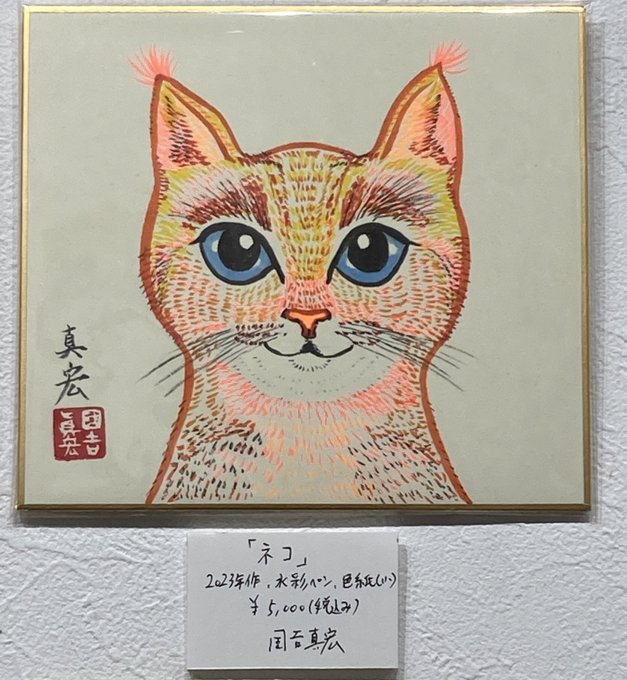 真宏
国吉
真宏
「ネコ」
2023年作、水彩ペン、色紙(小)
¥5,000(税込み)
国吉真宏